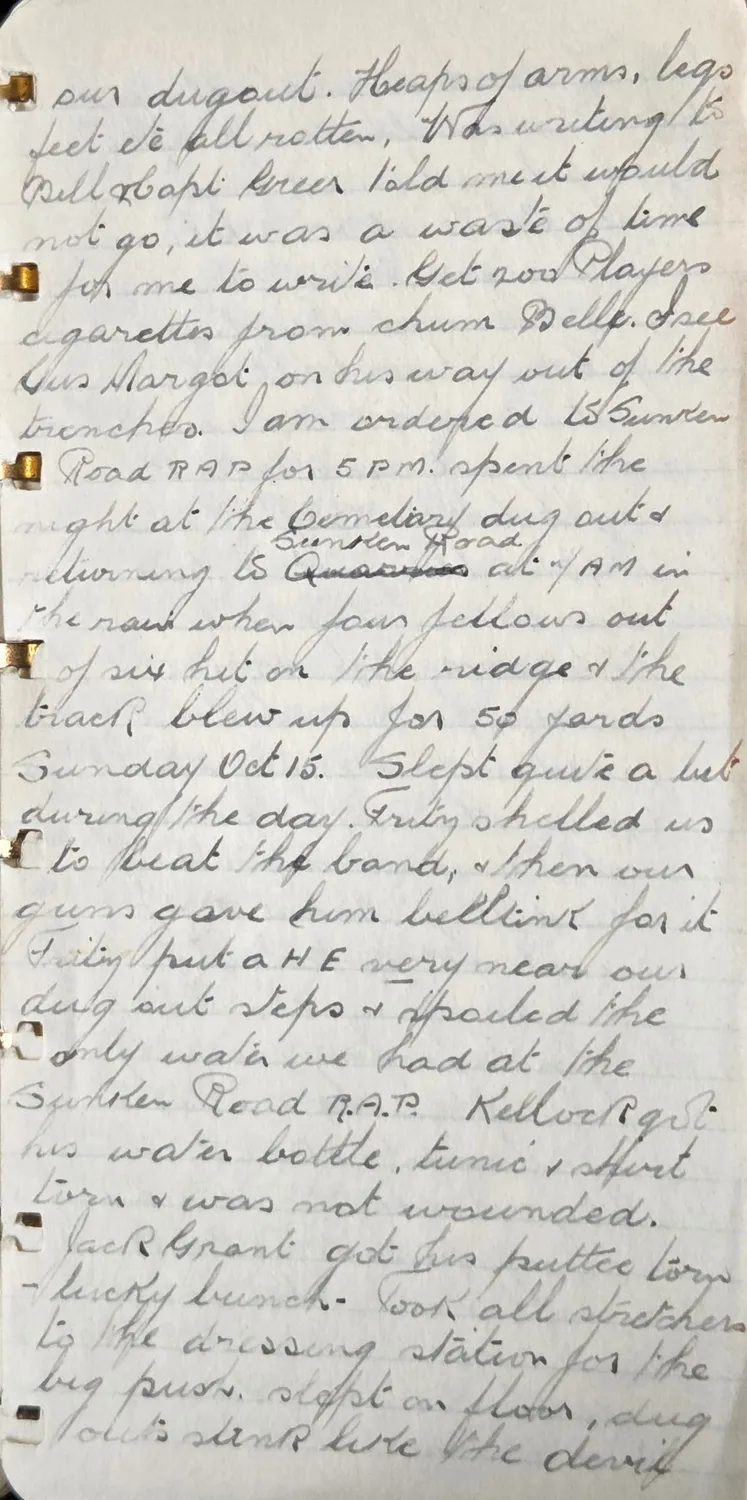 our dugout. Heaps of arms, legs
feet etc all rotten, Was writing to
Bell & Capt Greer told me it would
not go, it was a waste of time
for me to write. Get 200 Players
cigarettes from chum Belle. I see
Gus Margot on his way out of the
trenches. I am ordered to Sunken
Road RAP for 5 PM. spent the
night at the Cemetary dug out &
Sunken Road
returning to at 7 AM in
the raw when four fellows out
of six hit on the ridge & the
track blew up for 50 yards
Sunday Oct 15. Slept quite a bit
during the day. Fritz shelled us
to beat the band, & then our
guns gave him belltink for it
Fritz put a H E very near our
dug out steps & spoiled the
only water we had at the
Sunken Road R.A.P. Kellock got
his water bottle, tunic & shirt
torn & was not wounded.
Jack Grant got his puttee torn
- lucky bunch - Took all stretchers
to the dressing station for the
big push. slept on floor, dug
outs stink like the devil